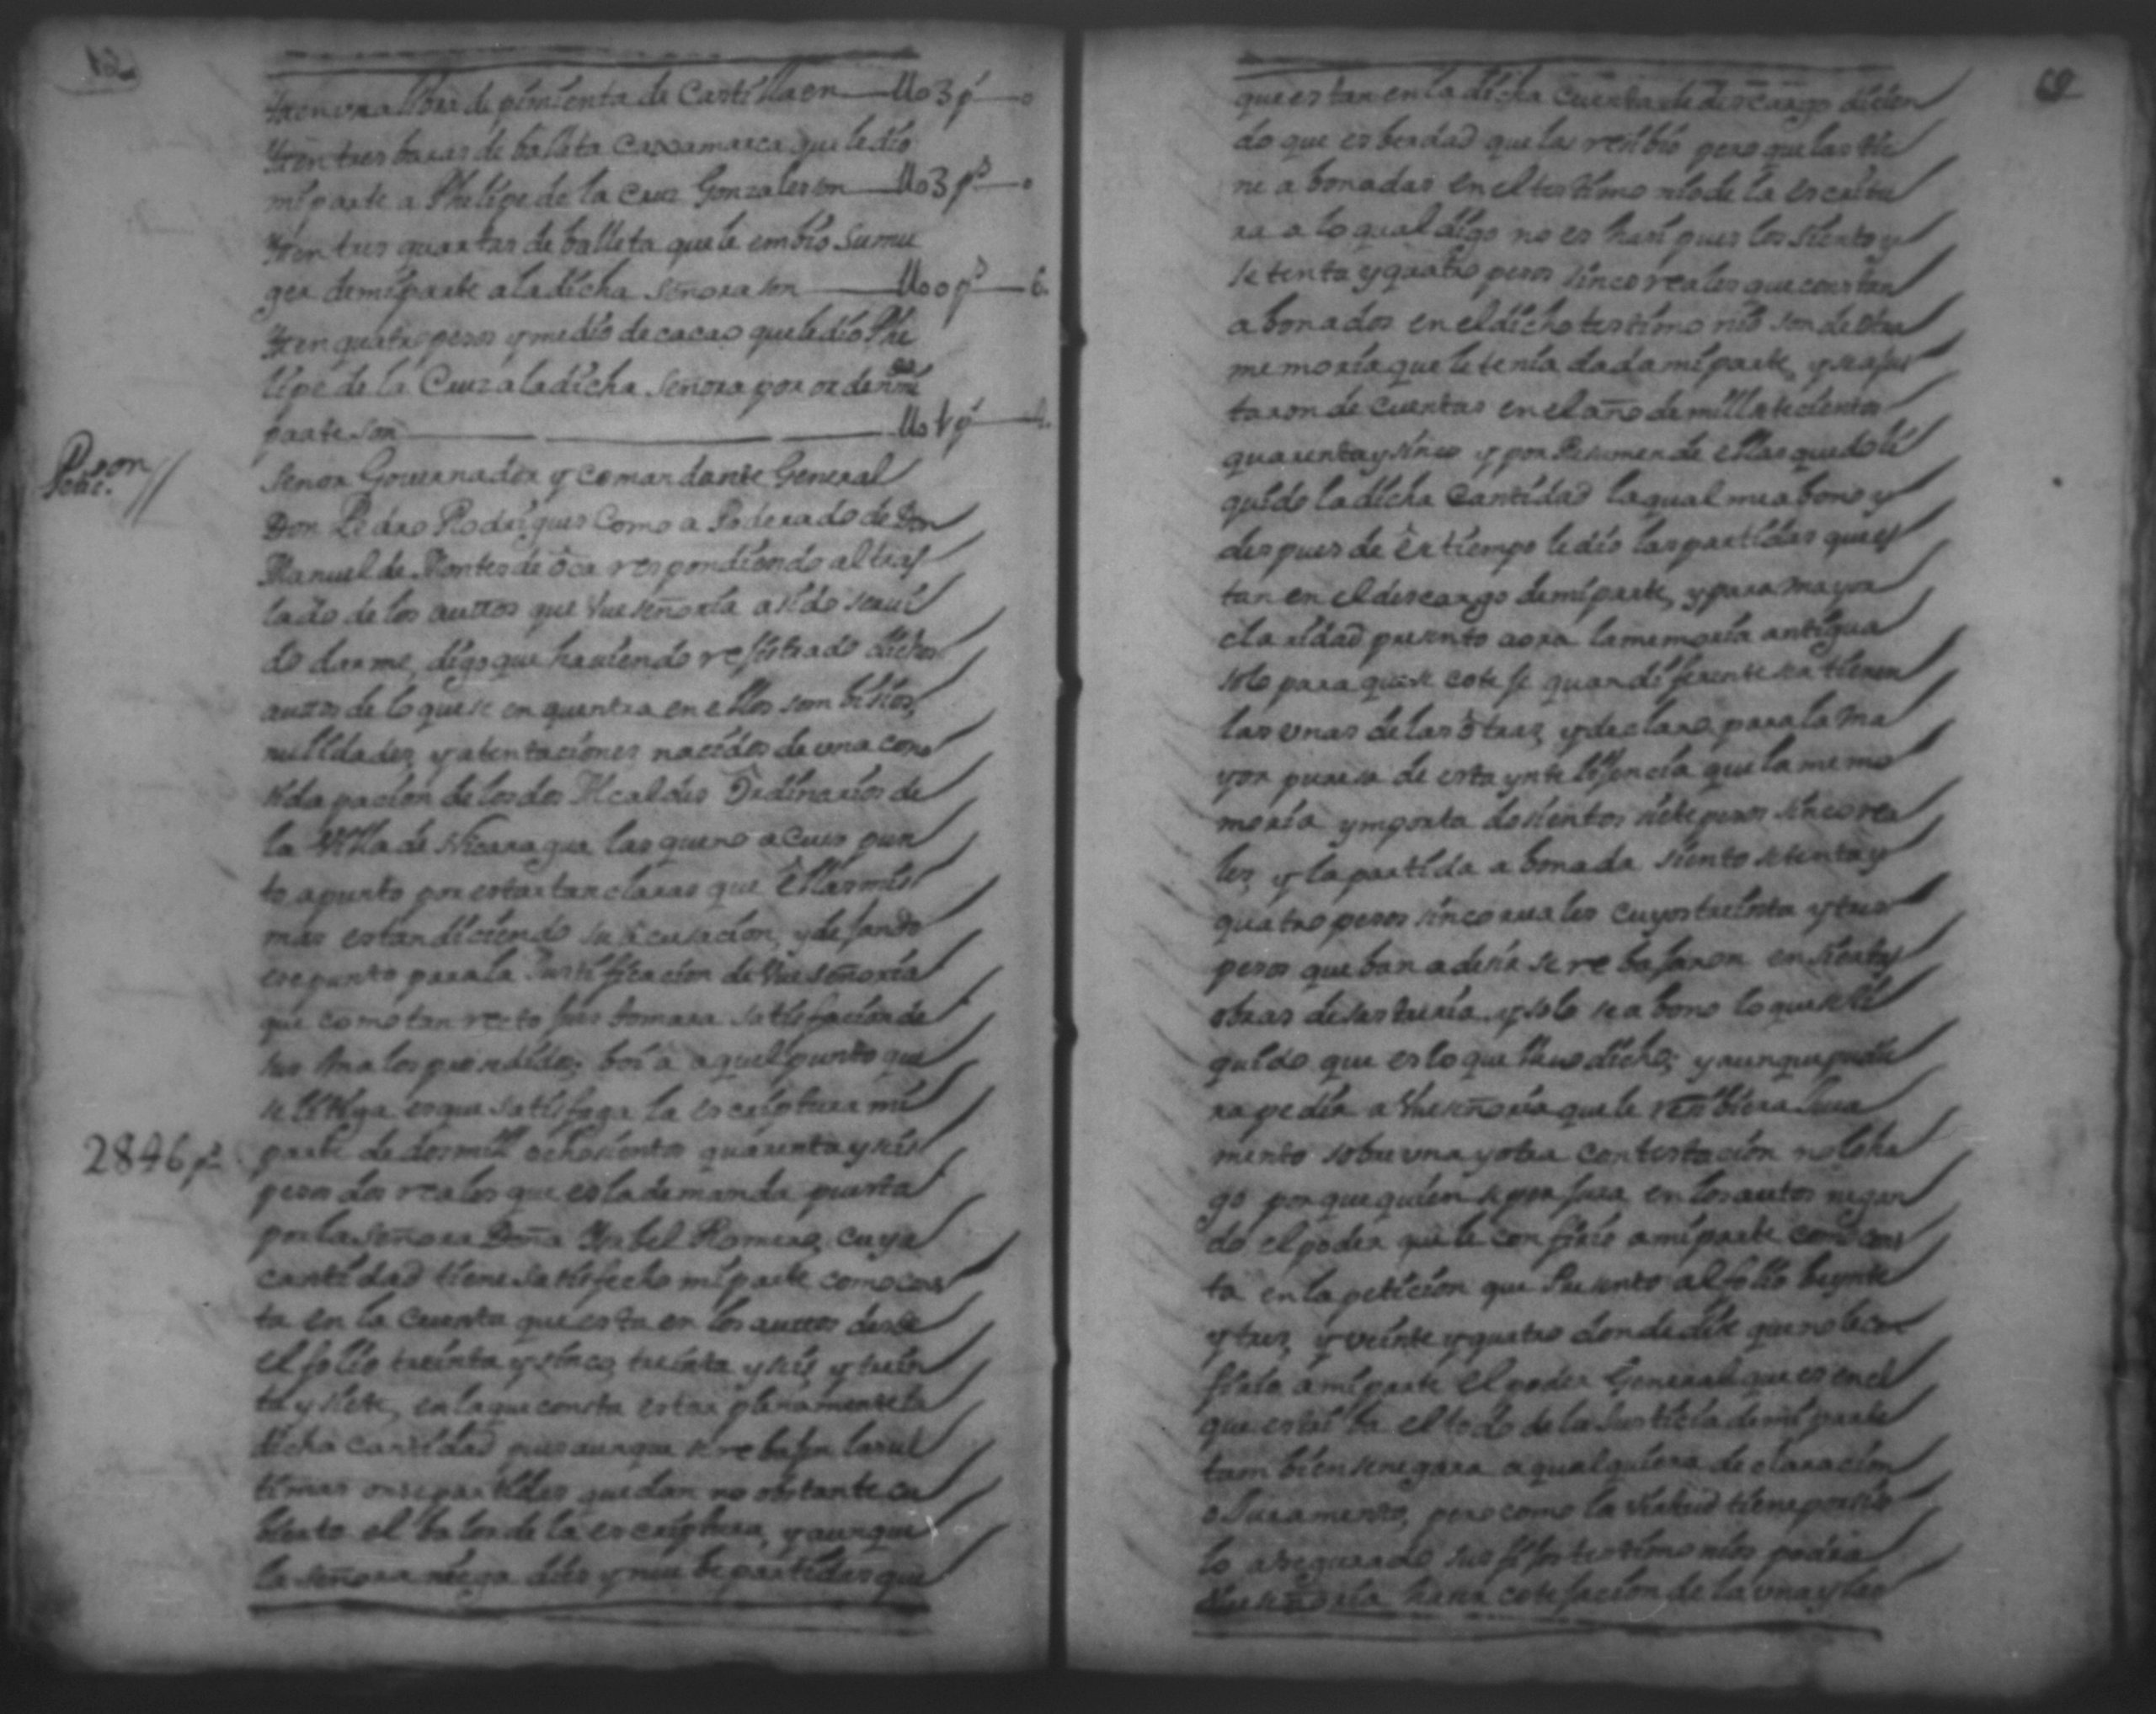 12
Yten una libra de pimienta de Castilla en — U03 ps — 0
Yten tres baras de balleta Caxamarca que le dio
mi parte a Phelipe de la Cruz Gonzales son — U03 ps — 0
Yten tres quartas de balleta que le embio su mu
ger de mi parte a la dicha señora son — U00 ps — 6
Yten quatro pesos y medio de cacao que le dio Phe
lipe de la Cruz a la dicha señora por orden de mi
parte son — U04 ps — 4
Petic.on //
Señor Governador y comandante General
Don Pedro Rodrigues como a Poderado de Don
Manuel de Montes de oca respondiendo al tras
lado de los auttos que Vueseñoria a sido servi
do darme, digo que haviendo resistrado dichos
auttos de lo que se enquentra en ellos som bisios,
nulidades, y atentaciones nacidos de una cono
sida pacion de los dos Alcaldes Ordinarios de
la Villa de Nicaragua las que no acuso pun
to a punto por estar tan claras que ellas mis
mas estan diciendo su acusacion, y dejando
ese punto para la Justificacion de Vueseñoria
que como tan recto jues tomara satisfacion de
sus malos prosedidos; boi a aquel punto que
se litiga es que satisfaga la escriptura mi
2846 ps
parte de dos mill ochosientos quarenta y seis
pesos dos reales que es la demanda puesta
por la señora Doña Ysabel Romero, cuya
cantidad tiene satisfecho mi parte como cons
ta en la cuenta que esta en los auttos desde
el folio treinta y sinco, treinta y seis y trein
ta y siete, en la que consta estar plenamente la
dicha cantidad pues aunque se rebajen las ul
timas onse partidas quedan no obstante cu
bierto el balor de la escriptura, y aunque
la señora niega dies y nuebe partidas que
que estan en la dicha cuenta de descargo dicien
do que es berdad que las resibio pero que las tie
ne abonadas en el testimonio de la escritu
ra a lo qual digo no es hasi pues los siento y
setenta y quatro pesos sinco reales que constan
abonados en el dicho testimonio son de otra
memoria que le tenia dada mi parte, y se ajus
taron de cuentas en el año de mill setecientos
quarenta y sinco y por Resumen de ellas quedo li
quido la dicha cantidad la qual me abono y
despues de ese tiempo le dio las partidas que es
tan en el descargo de mi parte, y para mayor
claridad presento aora la memoria antigua
solo para que se coteje quan diferentes son tienen
las unas de las otras, y declaro para la ma
yor puresa de esta yntelijencia que la me mo
moria ymporta dosientos siete pesos sinco rea
les, y la partida abonada siento setenta y
quatro pesos sinco reales cuyos treinta y tres
pesos que ban a desir se rebajaron en siertas
obras de sastreria y solo se abono lo que se li
quido que es lo que llevo dicho; y aunque pudie
ra pedir a Vueseñoria que le resibiera jura
mento sobre una y otra contestacion no lo ha
go por que quien se perjura en los autos negan
do el poder que le confirio a mi parte como cons
ta en la peticion que Presento al folio beynte
y tres, y veinte y quatro donde dise que no le con
firio a mi parte el poder General que es en el
que estriba el todo de la Justicia de mi parte
tambien se negara a qualquiera declaracion
o Juramento, pero como la virtud tiene por si
lo asegurado sus fijos testimonios podra
Vueseñoria haser cotejacion de la una y las